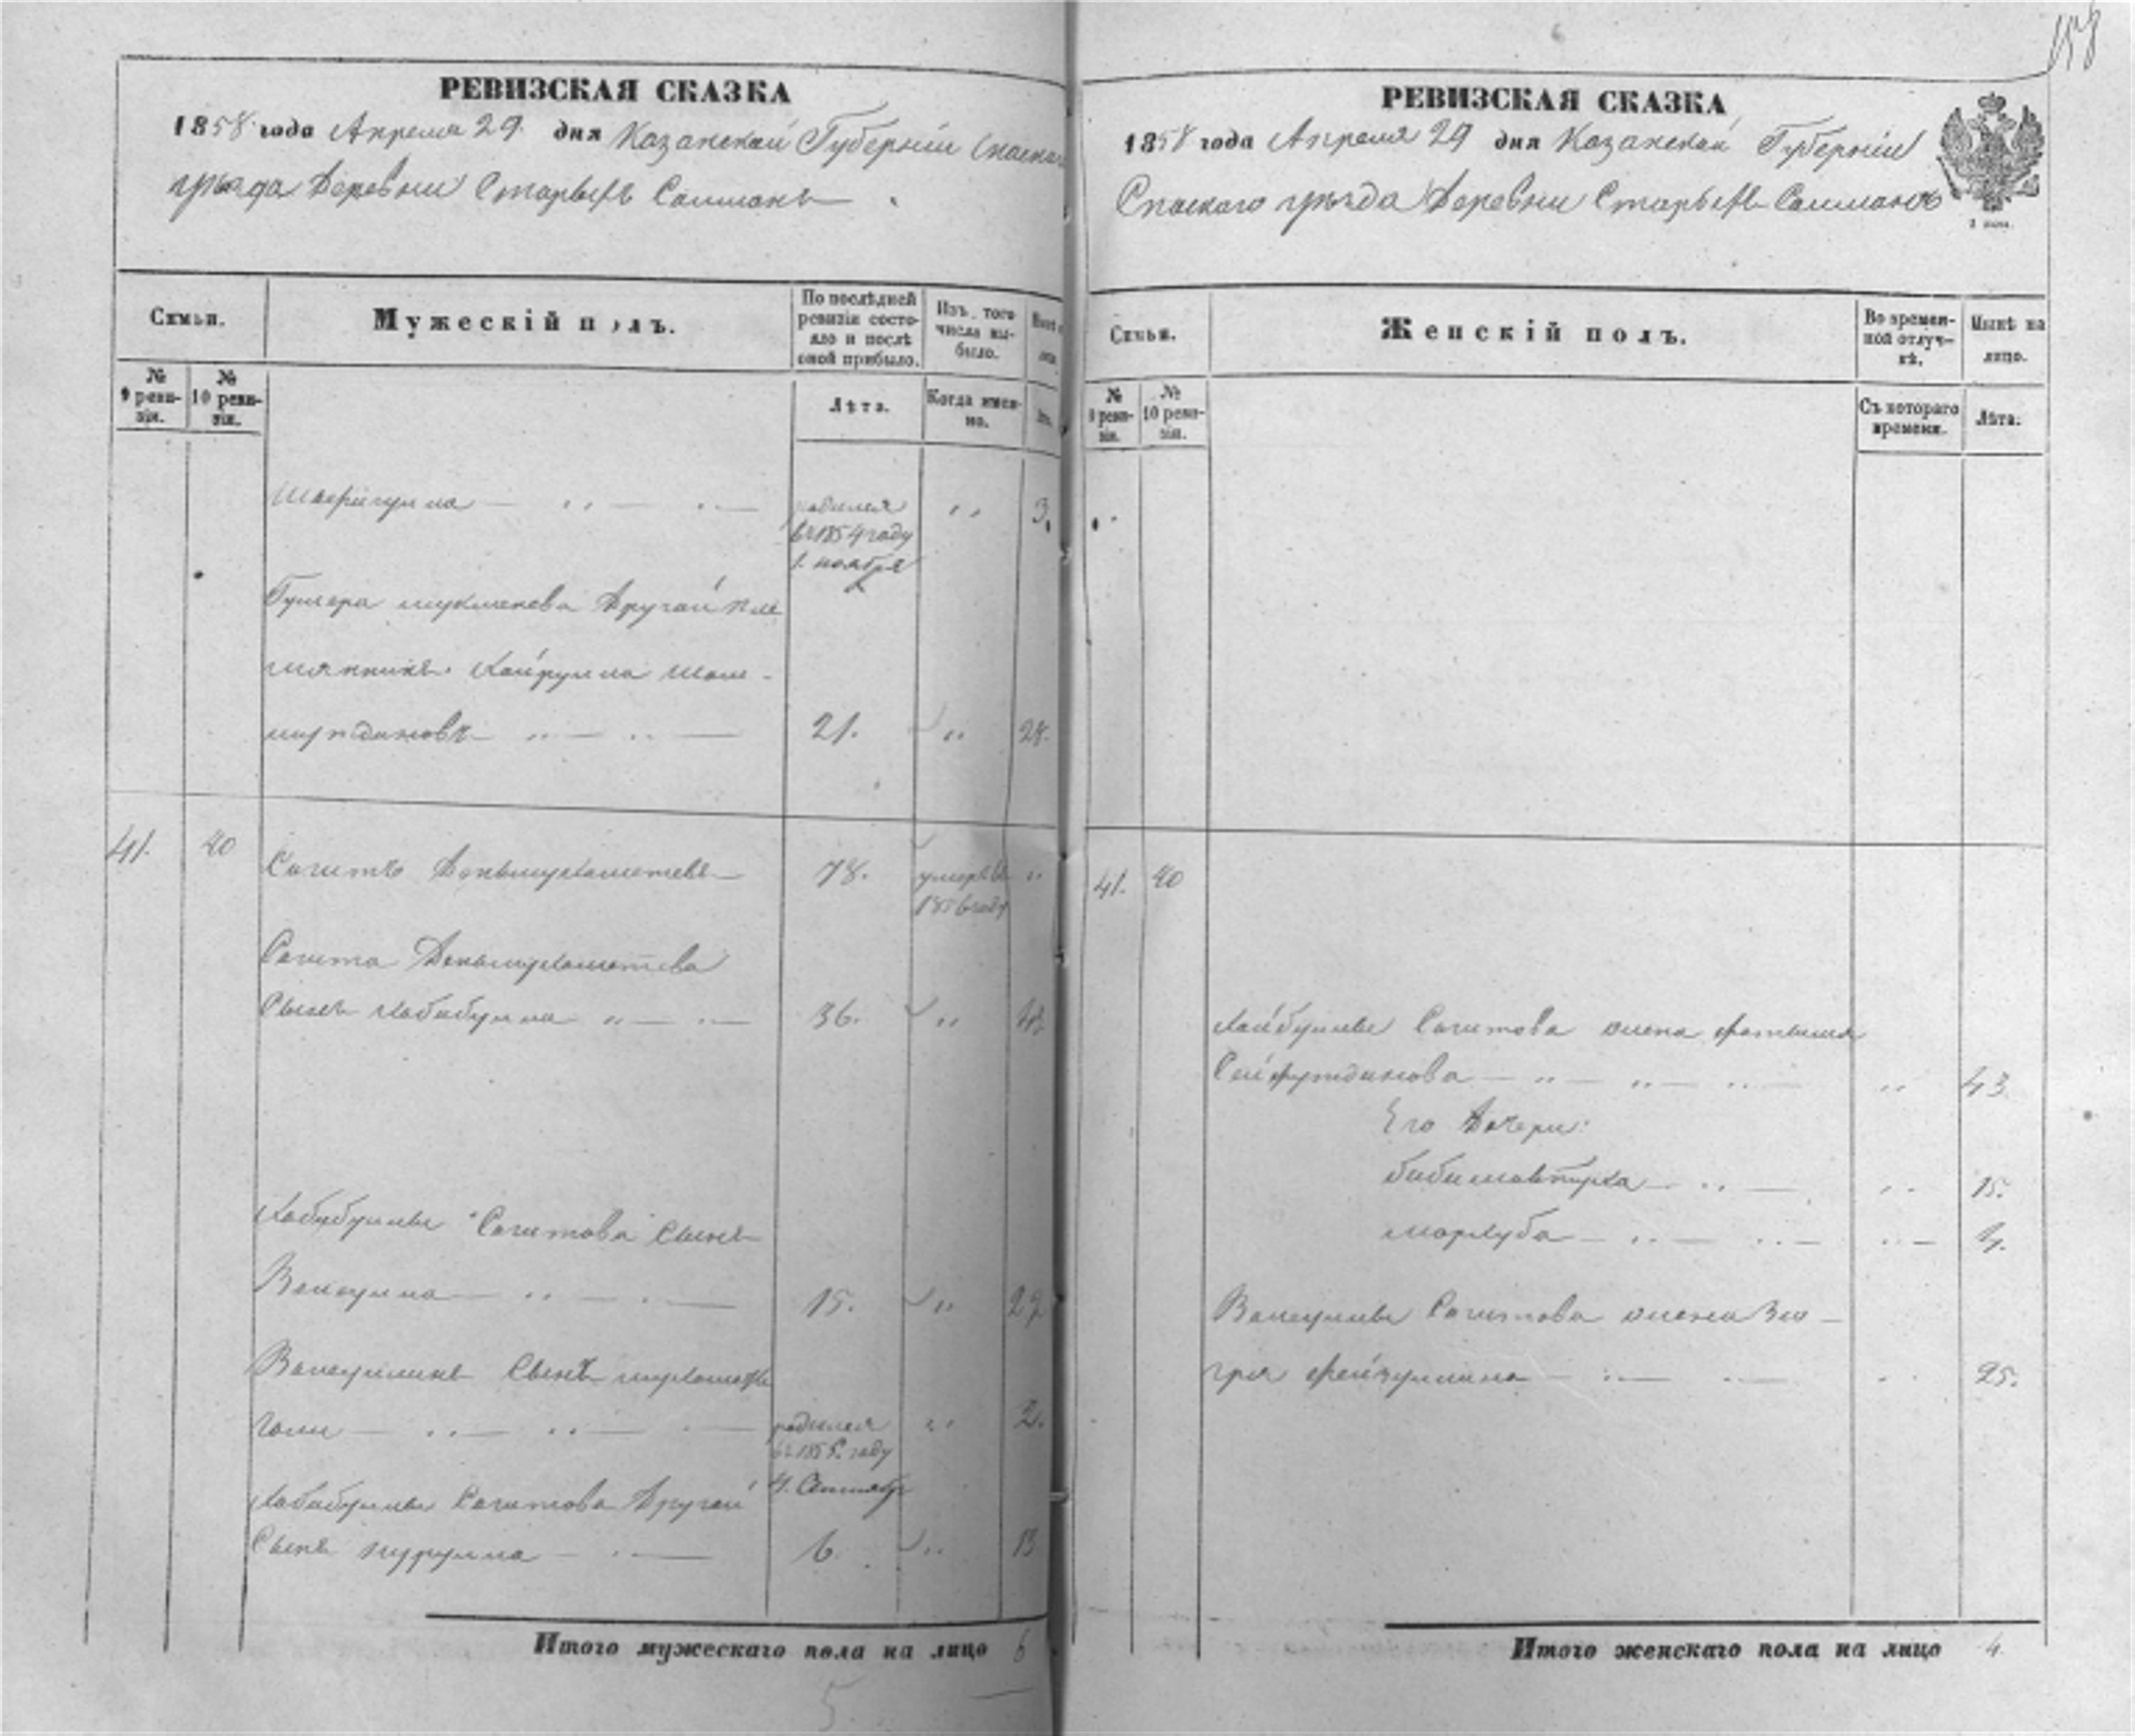 158
РЕВИЗСКАЯ СКАЗКА
1858 года Апреля 29 дня Казанской Губерніи Спаскаго
уѣзда Деревни Старыхъ Салманъ
Семьи.
Мужескій полъ.
По послѣдней ревизіи состояло и послѣ оной прибыло.
Изъ того числа выбыло.
№ 9 ревизіи.
№ 10 ревизіи.
Лѣта.
Когда именно.
Шафигулла родился 3.
въ 1854 году
1. ноября
Другой пле
мянникъ Хайрулла Шам-
мутдиновъ 21. 28.
41. 40 Сагитъ Даньмухаметевъ 78. умеръ въ
1856 году
Сагита Даньмухаметева
Сынъ Хабибулла 36.
Хабибуллы Сагитова Сынъ
Валиулла 15.
Валиуллинъ Сынъ Мухамет
гали родился 2.
году
4. Сентября
Хабибуллы Сагитова Другой
Сынъ Нурулла 6 13
Итого мужескаго пола на лицо 6
5
РЕВИЗСКАЯ СКАЗКА
1858 года Апреля 29 дня Казанской Губерніи
Спаскаго уѣзда Деревни Старыхъ Салманъ
Семьи.
Женскій полъ.
Во временной отлучкѣ.
Нынѣ на лицо.
№ 9 ревизіи.
№ 10 ревизіи.
Съ котораго времени.
Лѣта.
41. 40
Хайбуллы Сагитова жена Фатыма
Сейфутдинова 43
Его Дочери:
15.
Мархуба
Валиуллы Сагитова жена Зю-
гря Фейзуллина 25.
Итого женскаго пола на лицо 4